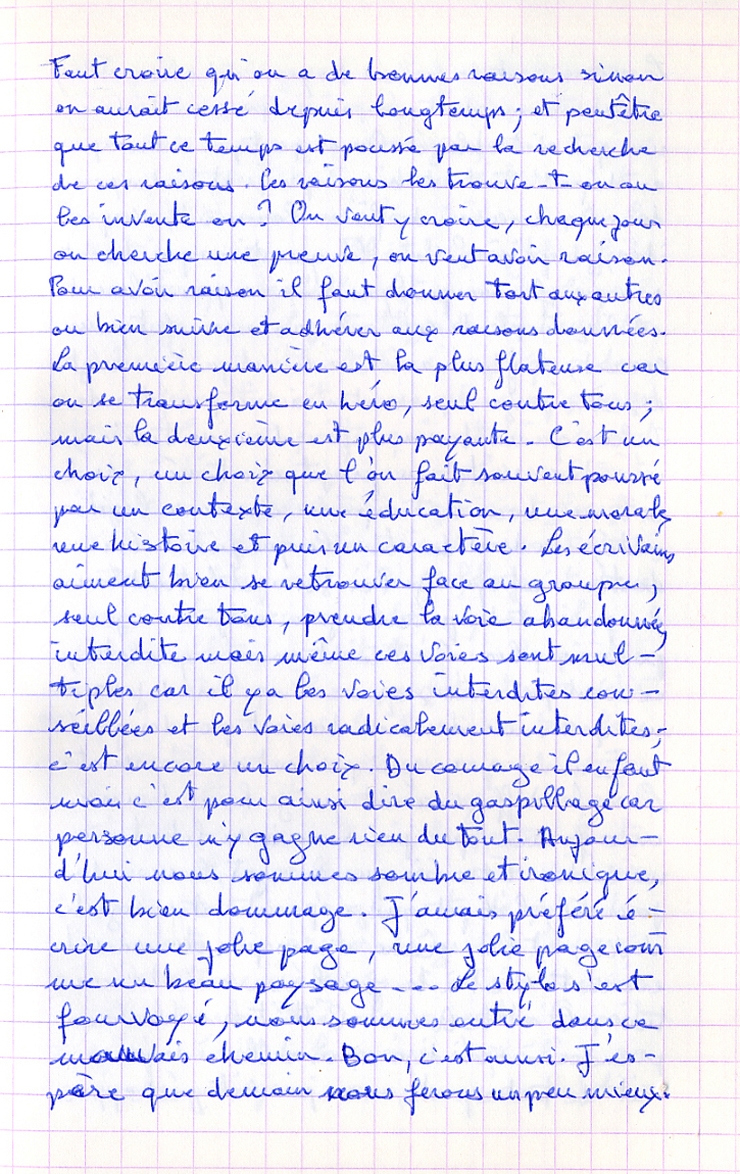 Faut croire qu'on a de bonnes raisons sinon
on aurait cessé depuis longtemps ; et peutêtre
que tout ce temps est poussé par la recherche
de ces raisons. Ces raisons les trouve-t-on ou
les invente on ? On veut y croire, chaque jour
on cherche une preuve, on veut avoir raison.
Pour avoir raison il faut donner tort aux autres
ou bien suivre et adhérer aux raisons données.
La première manière est la plus flateuse car
on se transforme en héro, seul contre tous ;
mais la deuxième est plus payante. C'est un
choix, un choix que l'on fait souvent poussé
par un contexte, une éducation, une morale,
une histoire et puis un caractère. Les écrivains
aiment bien se retrouver face au groupe,
seul contre tous, prendre la voie abandonnée,
interdite mais même ces voies sont mul-
tiples car il y a les voies interdites con-
seillées et les voies radicalement interdites ;
c'est encore un choix. Du courage il en faut
mais c'est pour ainsi dire du gaspillage car
personne n'y gagne rien du tout. Aujour-
d'hui nous sommes sombre et ironique,
c'est bien dommage. J'aurais préféré é-
crire une jolie page, une jolie page com
me un beau paysage... Le stylo s'est
fourvoyé, nous sommes entré dans ce
mauvais chemin. Bon, c'est ainsi. J'es-
père que demain nous ferons un peu mieux.